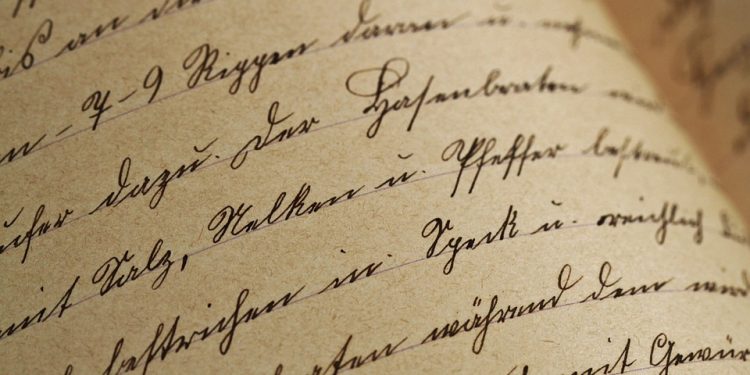 bis an die
7-9 Rippen daran u.
dazu. Der Hasenbraten
mit Salz, Nelken u. Pfeffer bestreut
bestrichen in. Speck u. reichlich
während dem wird
mit Gewür